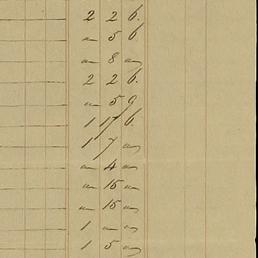 2 2 6.
" 5 6
" 8 "
2 2 6.
" 5 9
1 17 6.
1 7 "
" 4 "
" 15 "
" 15 "
1 " "
1 5 "